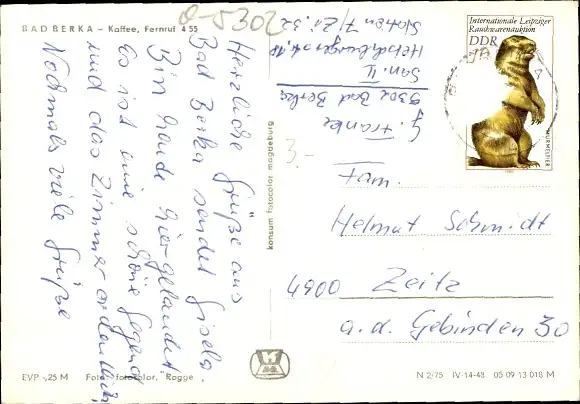 O-5302
BAD BERKA – Kaffee, Fernruf 4 55
Herzliche Grüße aus
Bad Berka sendet Gisela.
Bin heute hier gelandet
Es ist eine schöne Gegend
und das Zimmer ordentlich,
Nochmals viele Grüße
G. Franke
5302 Bad Berka
San. II
Station 7/Zi. 32
konsum fotocolor magdeburg
3.-
Internationale Leipziger
Rauchwarenauktion
DDR
MURMELTIER
1982
Fam.
Helmut Schmidt
4900 Zeitz
a. d. Gebinden 30
EVP -,25 M
Foto: fotocolor, Rogge
N 2/75 IV-14-48 05 09 13 018 M